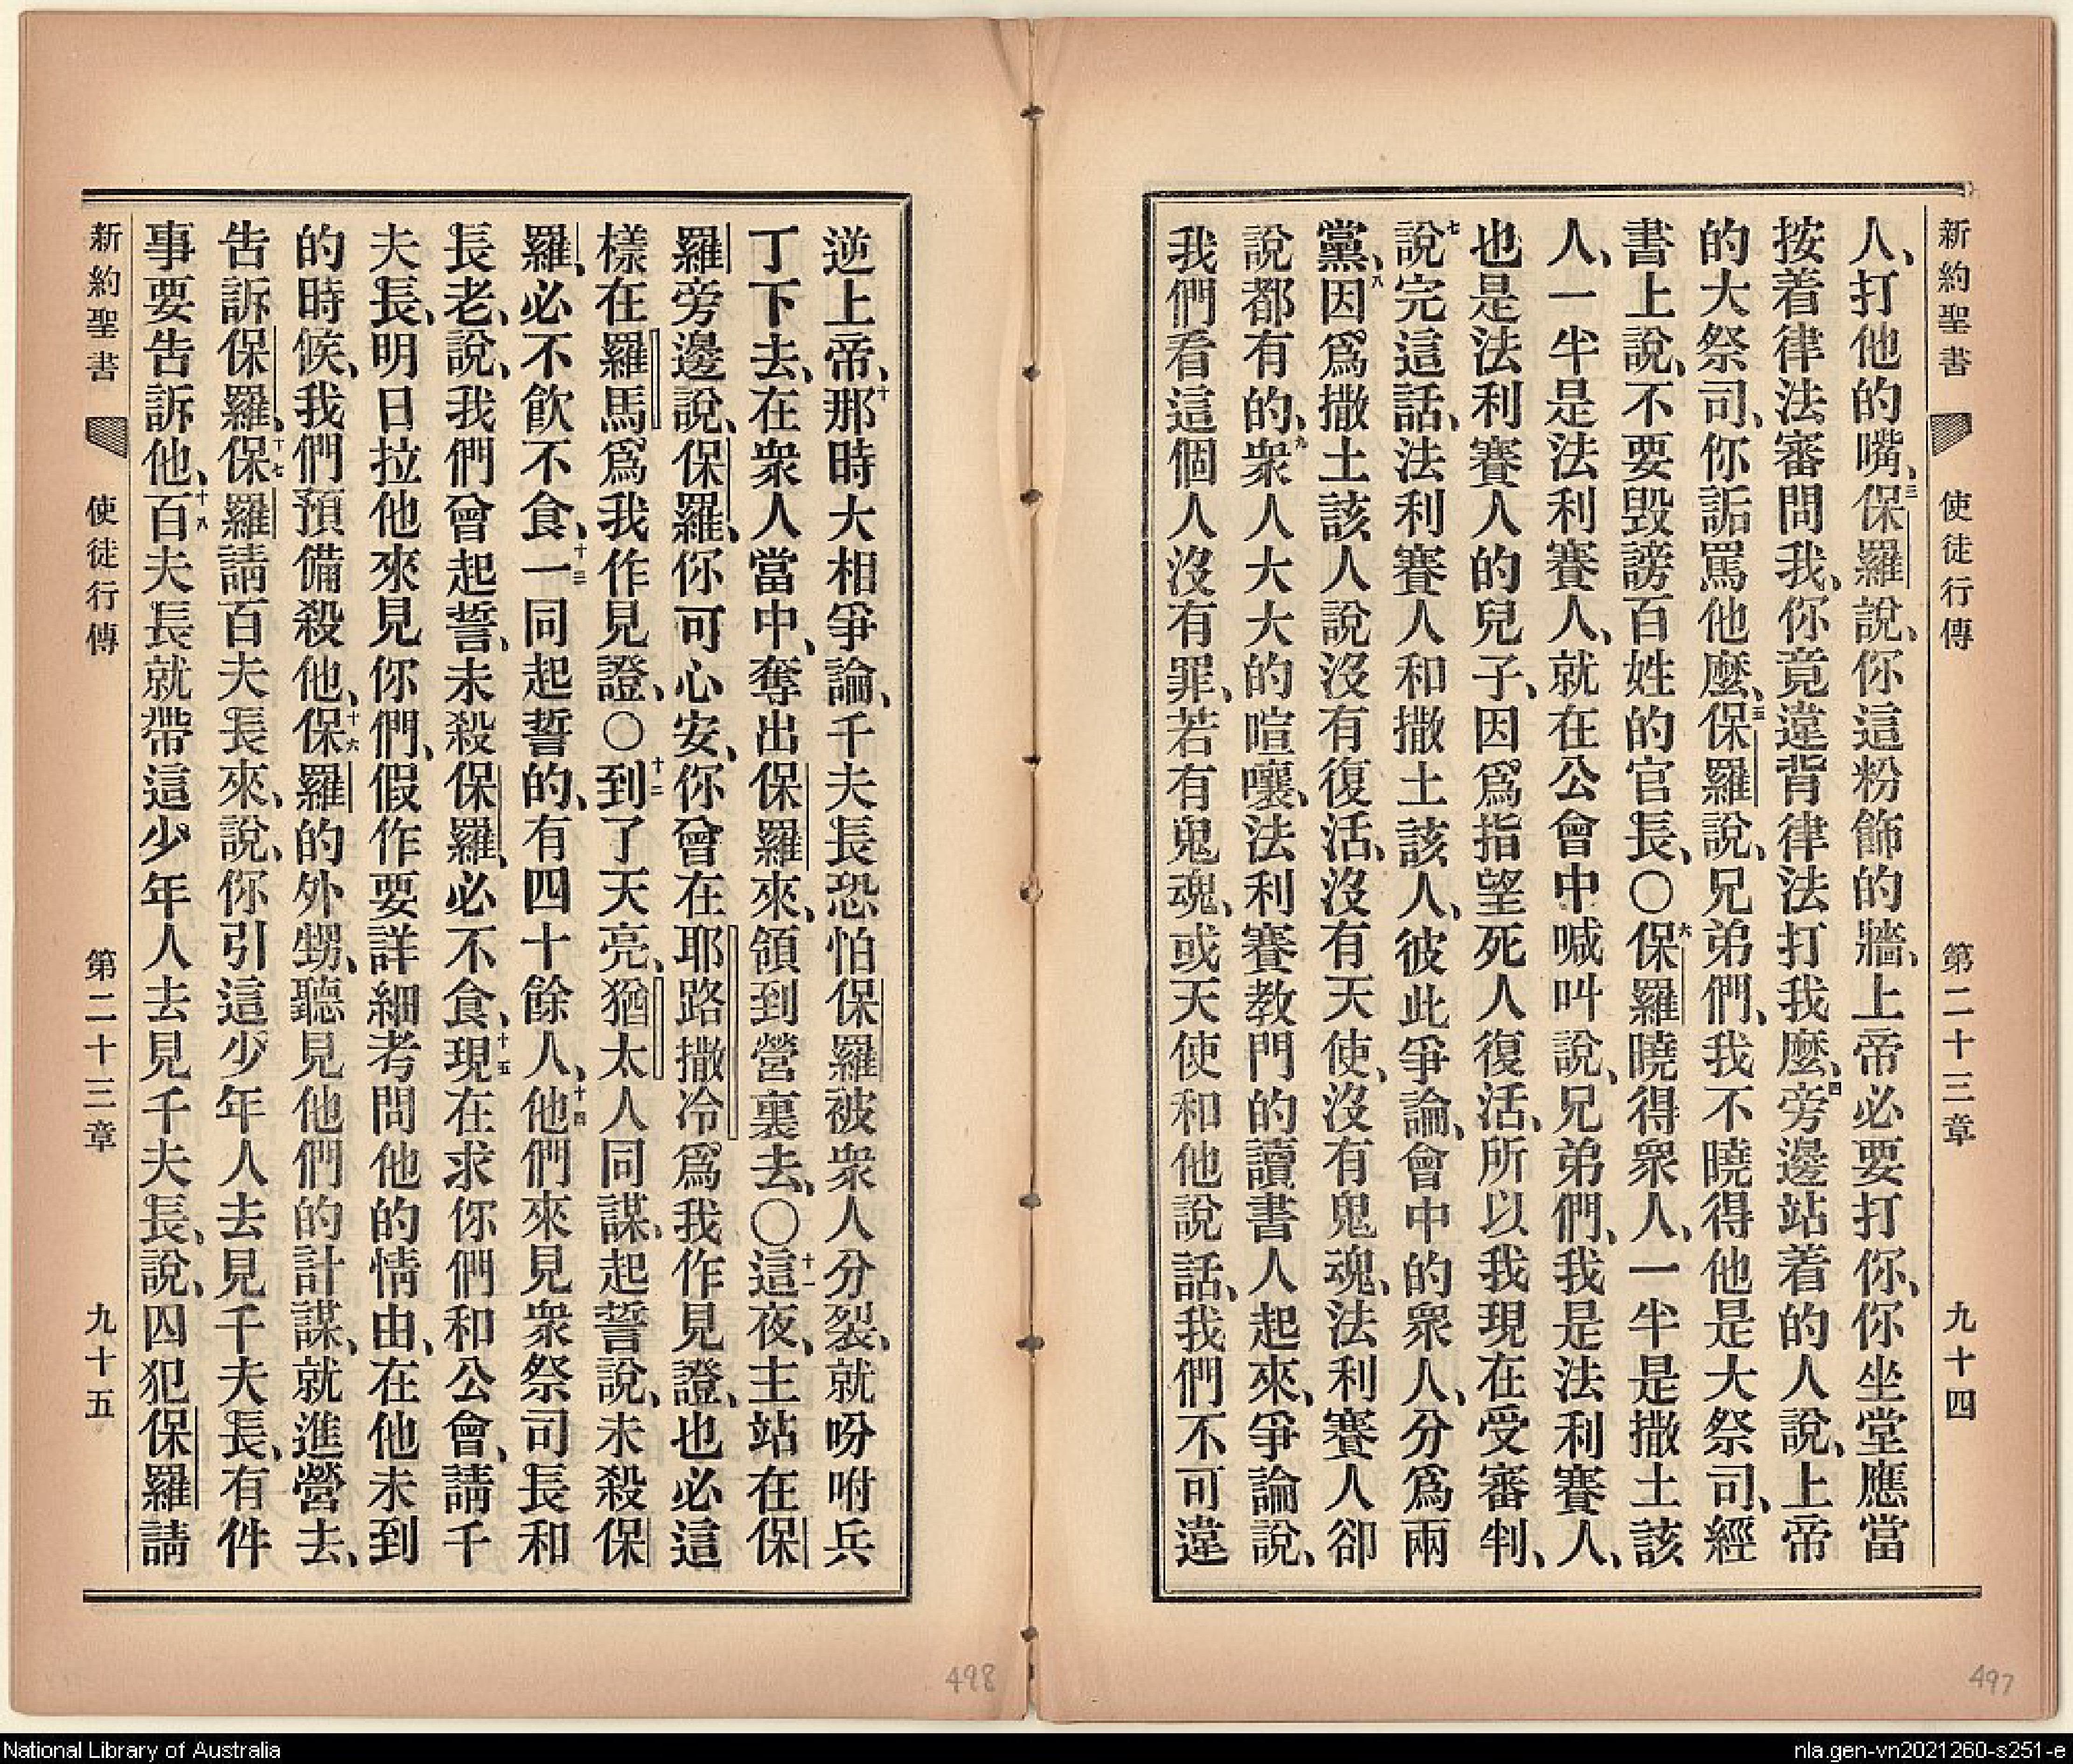 新約聖書 使徒行傳 第二十三章 九十四
人、打他的嘴、三保羅說、你這粉飾的牆、上帝必要打你、你坐堂應當
按着律法審問我、你竟違背律法打我麼、四旁邊站着的人說、上帝
的大祭司、你詬罵他麼、五保羅說、兄弟們、我不曉得他是大祭司、經
書上說、不要毀謗百姓的官長、〇六保羅曉得眾人、一半是撒土該
人、一半是法利賽人、就在公會中喊叫說、兄弟們、我是法利賽人、
也是法利賽人的兒子、因爲指望死人復活、所以我現在受審判、
七說完這話、法利賽人和撒土該人、彼此爭論、會中的眾人、分爲兩
黨、八因爲撒土該人說沒有復活、沒有天使、沒有鬼魂、法利賽人卻
說都有的、九衆人大大的喧嚷、法利賽教門的讀書人起來、爭論說、
我們看這個人沒有罪、若有鬼魂、或天使和他說話、我們不可違
逆上帝、十那時大相爭論、千夫長恐怕保羅被衆人分裂、就吩咐兵
丁下去、在衆人當中、奪出保羅來、領到營裏去、〇十一這夜、主站在保
羅旁邊說、保羅、你可心安、你曾在耶路撒冷爲我作見證、也必這
樣在羅馬爲我作見證、〇十二到了天亮、猶太人同謀、起誓說、未殺保
羅、必不飲不食、十三一同起誓的、有四十餘人、十四他們來見衆祭司長和
長老、說、我們曾起誓、未殺保羅、必不食、十五現在求你們和公會、請千
夫長、明日拉他來見你們、假作要詳細考問他的情由、在他未到
的時候、我們預備殺他、十六保羅的外甥、聽見他們的計謀、就進營去、
告訴保羅、十七保羅請百夫長來、說、你引這少年人去見千夫長、有件
事要告訴他、十八百夫長就帶這少年人去見千夫長、說、囚犯保羅請
新約聖書 使徒行傳 第二十三章 九十五
498
497
National Library of Australia
nla.gen-vn2021260-s251-e